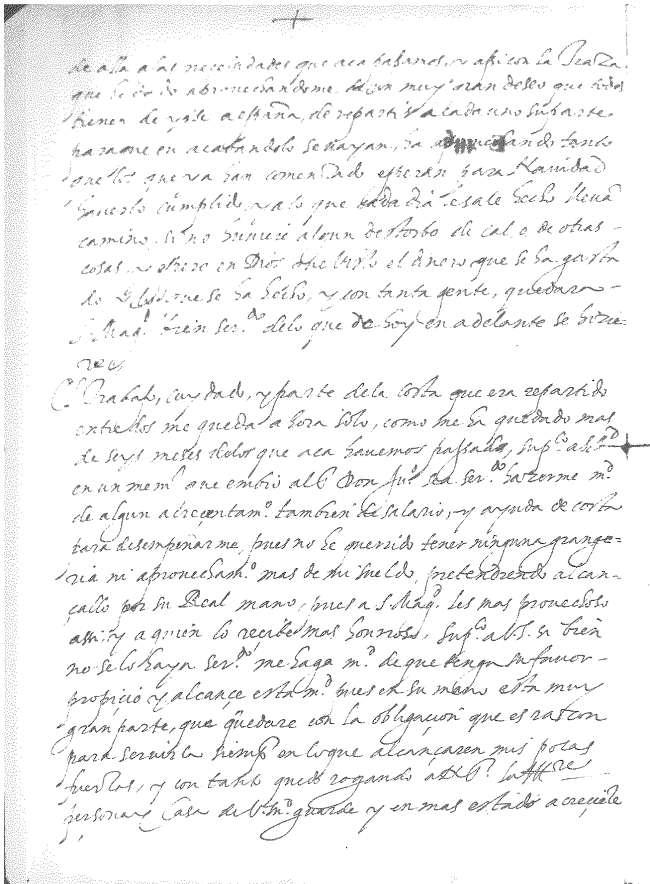 de alla a las necesidades que aca pasamos, y assi con la Traza
que se dio aprouechandome de un muy gran deseo que todos
tienen de yrse a españa, de repartir a cada uno su parte
para que en acabandolo se vayan, ha aprouechando tanto
que los que ya han comenzado esperan para Nauidad
hauerlo cumplido, y a lo que cada dia se sale hecho lleua
camino, si no huuiere algun destorbo de cal o de otras
cosas, y espero en Dios que visto el dinero que se ha gasta
do y lo que se ha hecho, y con tanta gente, quedara
S. Mag.d bien ser.do de lo que de hoy en adelante se hizie
re
El Trabajo, cuydado, y parte de la costa que era repartido
entre dos me queda ahora solo, como me ha quedado mas
de seys meses de los que aca hauemos passado, sup.co a
en un mem.l que embio al Don Ju.o sea ser.do hazerme m.d
de algun acrecentam.o tambien de salario, y ayuda de costa
para desempeñarme, pues no he querido tener ninguna grange-
ria ni aprouecham.o mas de mi sueldo, pretendiendo alcan-
çallo por su Real mano, pues a S. Mag.d les mas prouechoso
assi y a quien lo recibe mas honrroso, sup.co a V.S. si bien
no se lo haya ser.do me haga m.d de que tenga su fauor
propicio y alcançe esta m.d pues en su mano esta muy
gran parte, que quedare con la obligacion que es razon
para seruirla siemp.e en lo que alcançaren mis pocas
fuerças, y con tanto quedo rogando a la Ill.re
persona y Casa de V. m.d guarde y en mas estado acreciente